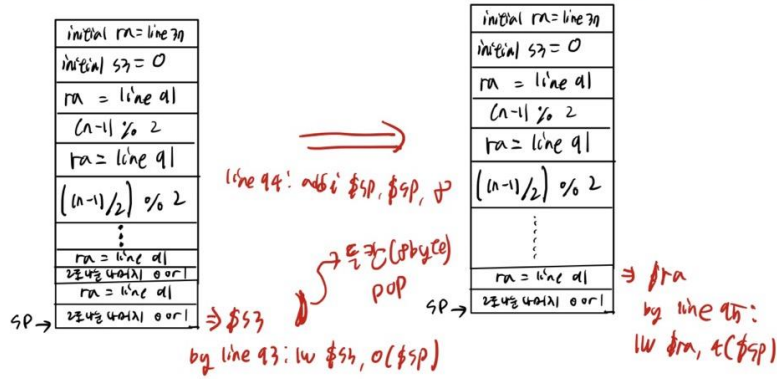 initial ra = line 37
initial s3 = 0
ra = line 91
(n-1) % 2
ra = line 91
((n-1)/2) % 2
ra = line 91
2로 나눈 나머지 0 or 1
ra = line 91
2로 나눈 나머지 0 or 1
sp →
⇒ $s3
by line 93: lw $s3, 0($sp)
line 94: addi $sp, $sp, 8
두 칸(8byte)
pop
initial ra = line 37
initial s3 = 0
ra = line 91
(n-1) % 2
ra = line 91
((n-1)/2) % 2
ra = line 91
2로 나눈 나머지 0 or 1
sp →
⇒ $ra
by line 95:
lw $ra, 4($sp)